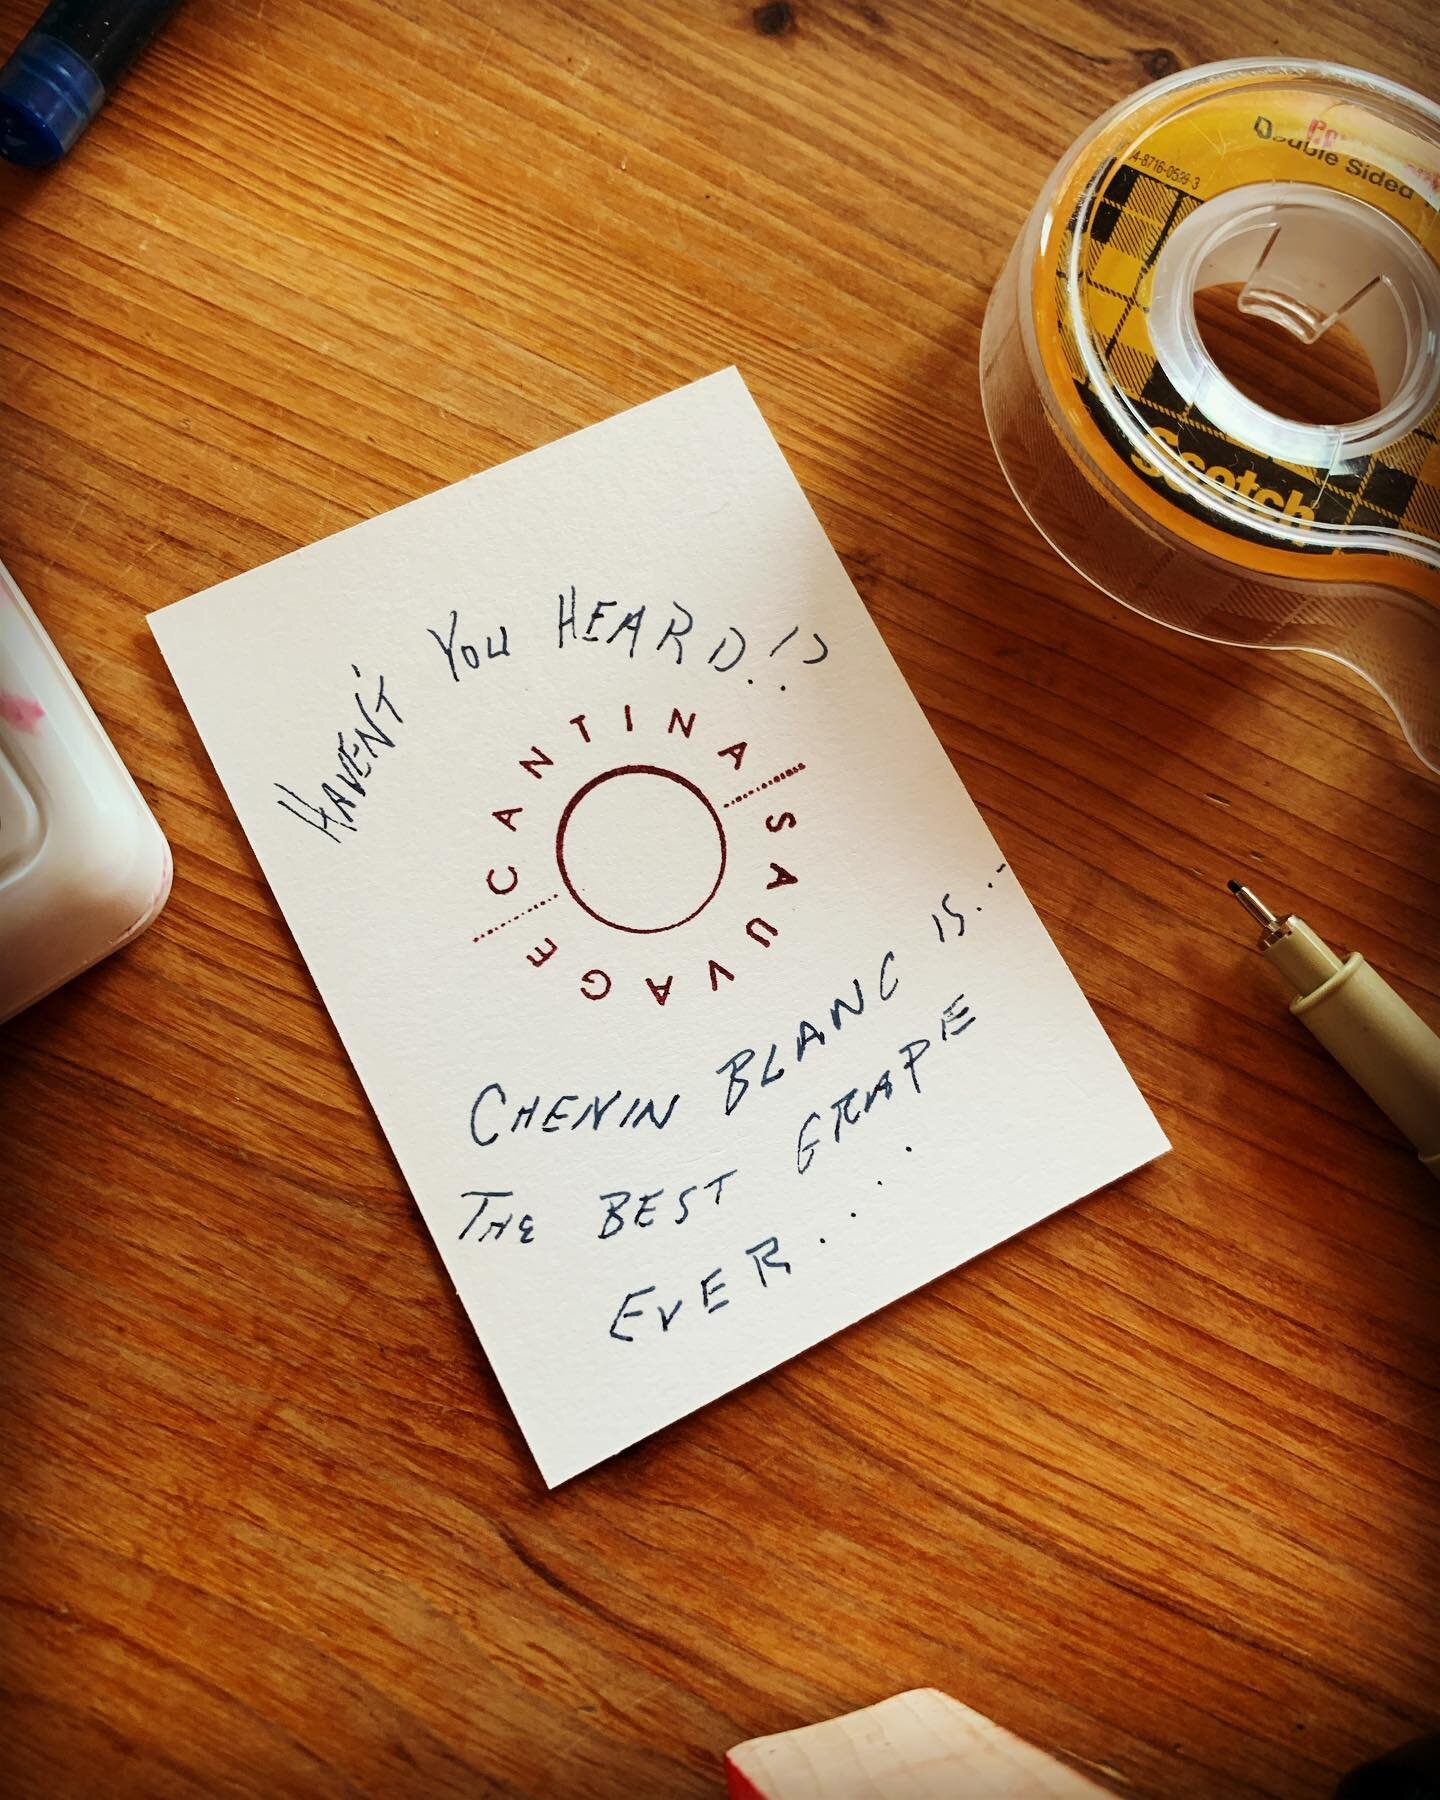 Double Sided
4-8716-0529-3
Scotch
HAVEN'T YOU HEARD!?
CANTINA
SAUVAGE
CHENIN BLANC IS...
THE BEST GRAPE
EVER.....